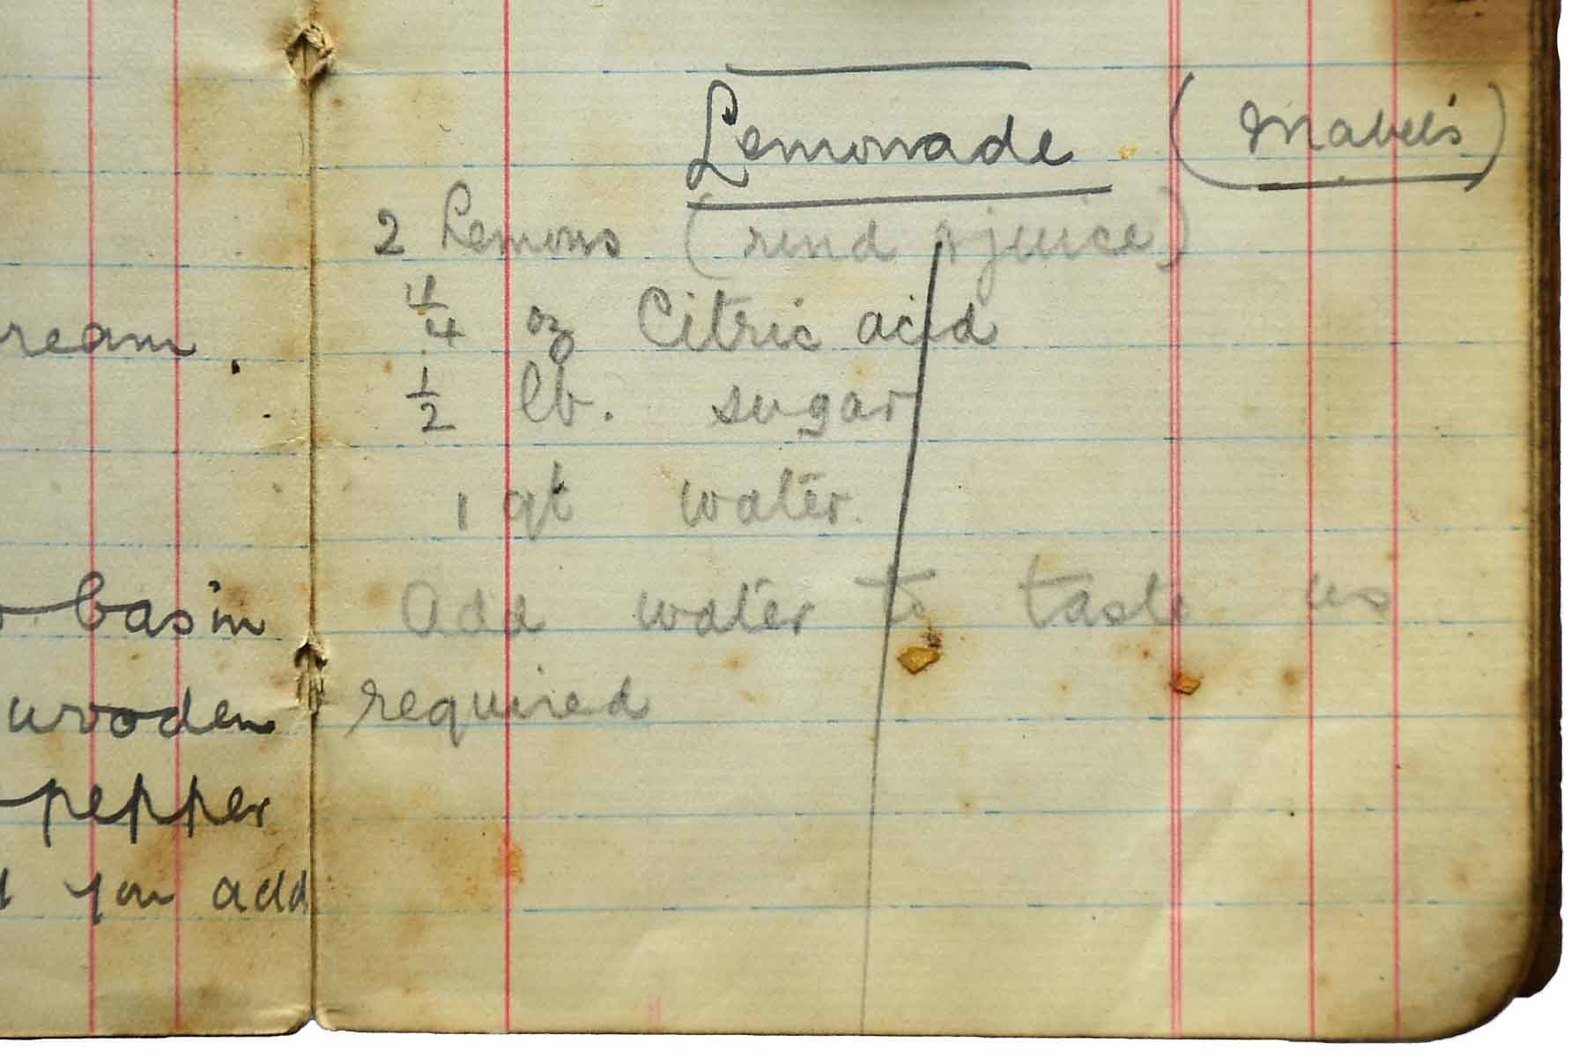 ream.
basin
wooden
pepper
you add
Lemonade (Mabel's)
2 Lemons (rind & juice)
1/4 oz Citric acid
1/2 lb. sugar
1 qt water.
Add water to taste as
required